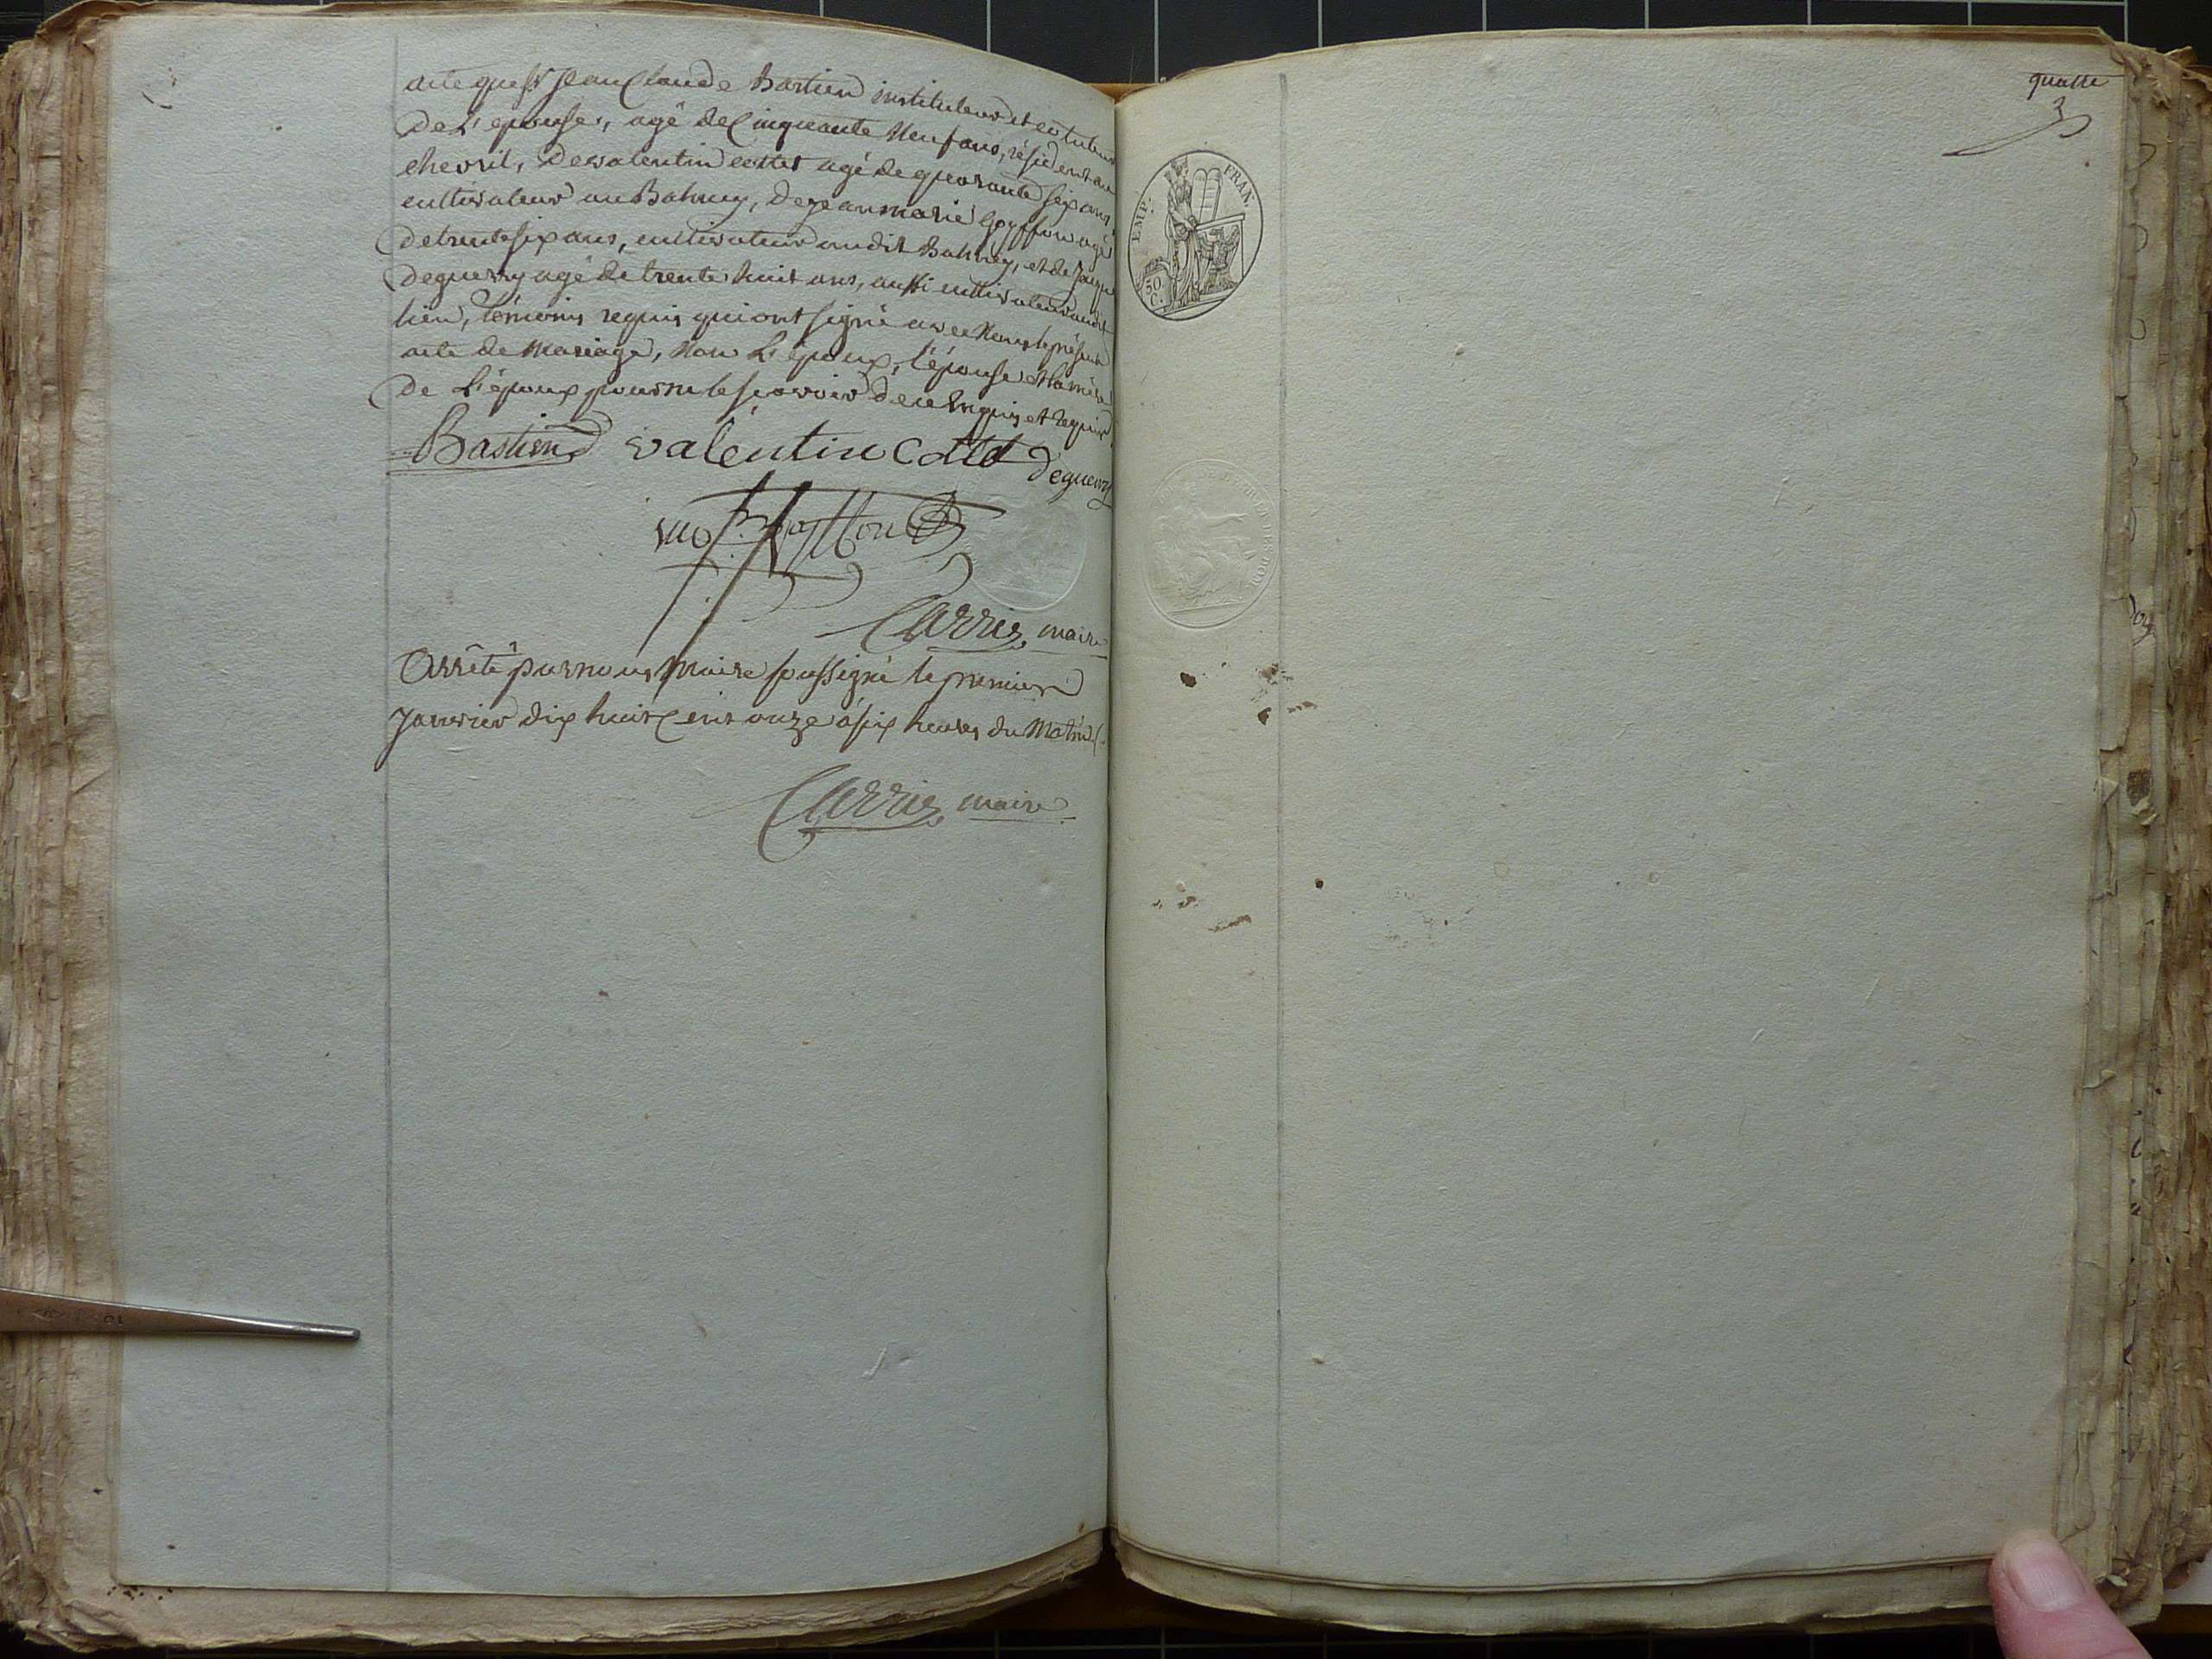 acte que sr Jean Claude Bastien instituteur et co tuteur
de L'épouse, agé de Cinquante Neuf ans, résident au
chevril, de valentin cottet agé de quarante six ans,
cultivateur au Bahucy, de jean marie goyffon agé
de trente six ans, cultivateur audit Bahucy, et de jacque
deguerry agé de trente huit ans, aussi cultivateur audit
lieu, témoins requis qui ont signé avec Nous le présent
acte de Mariage, Non L'époux, l'épouse et la mère
de L'époux pour ne le sçavoir de ce Enquis et requis
Bastien valéntin Cottet deguerry
goyffon
Carrier maire
Arrêté par nous Maire soussigné le premier
Janvier dix huit Cent onze à six heures du Matin
Carrier maire
quatre
EMP. FRAN.
50
C.